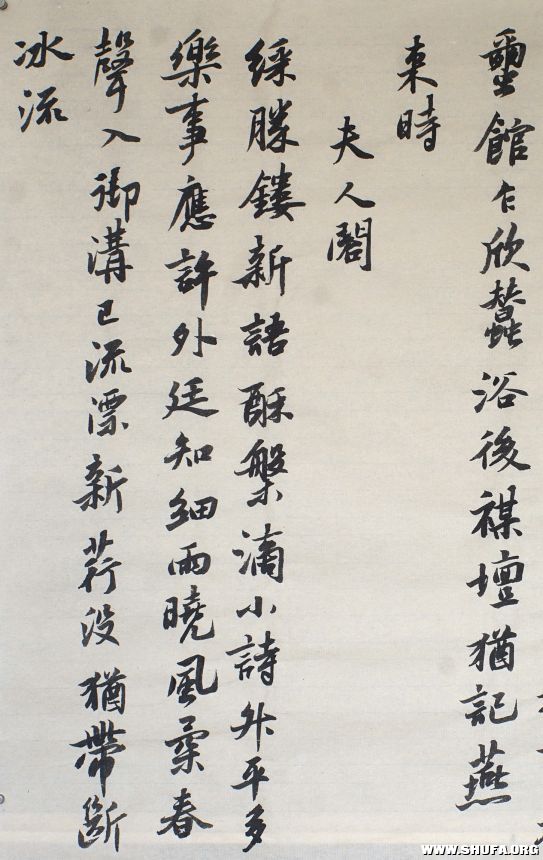 蠒館乍欣蠶浴後禖壇猶記燕
来時
夫人閣
綵勝鏤新語酥槃滴小詩升平多
樂事應許外廷知細雨曉風柔春
聲入御溝已流漂新荇没猶帶斷
冰流
WWW.SHUFA.ORG